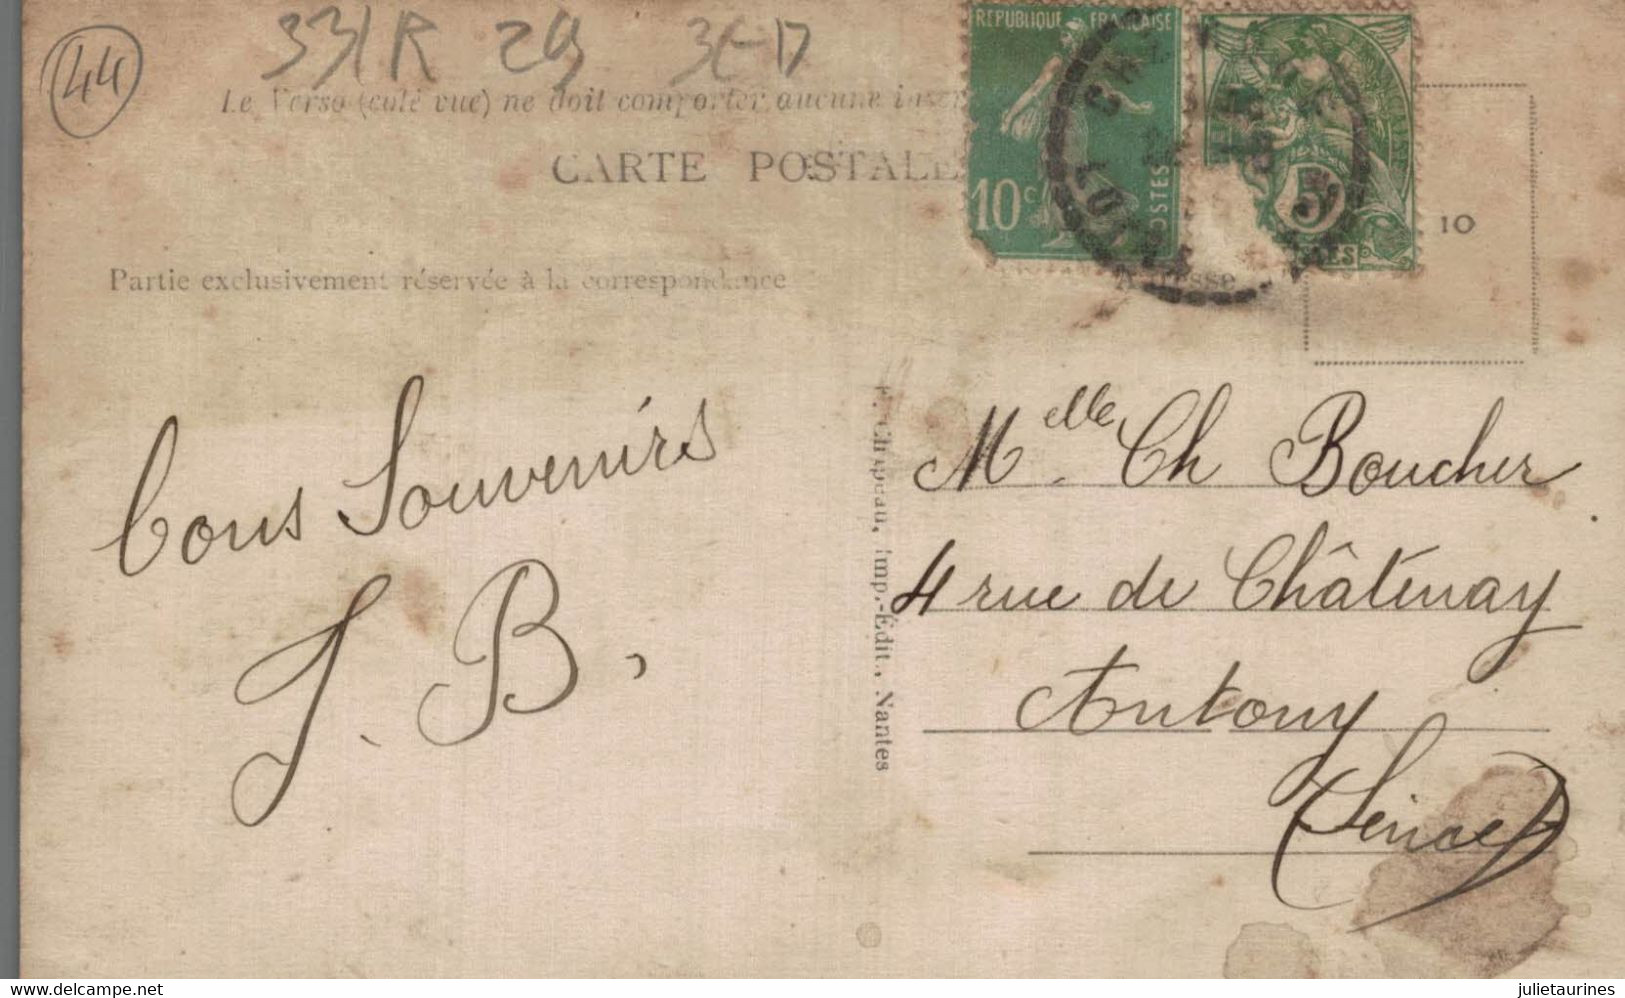 44
331R 29
Le Verso (côté vue) ne doit comporter aucune
RÉPUBLIQUE FRANÇAISE
CARTE POSTALE
10c
POSTES
5
10
Partie exclusivement réservée à la correspondance
Adresse
Bons Souvenirs
J. B.
F. Chapeau, Imp.-Édit., Nantes
Melle Ch Boucher
4 rue de Châtenay
Antony
(Seine)
https://www.delcampe.net
julietaurines